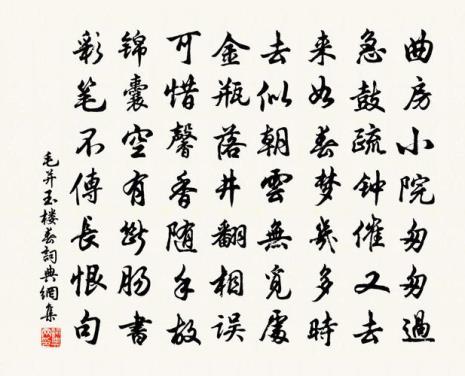 曲房小院匆匆過
急鼓疏钟催又去
来如春梦幾多時
去似朝雲無覓處
金瓶落井翻相误
可惜馨香随手故
锦囊空有断肠書
彩笔不傳長恨句
毛开玉楼春詞典網集